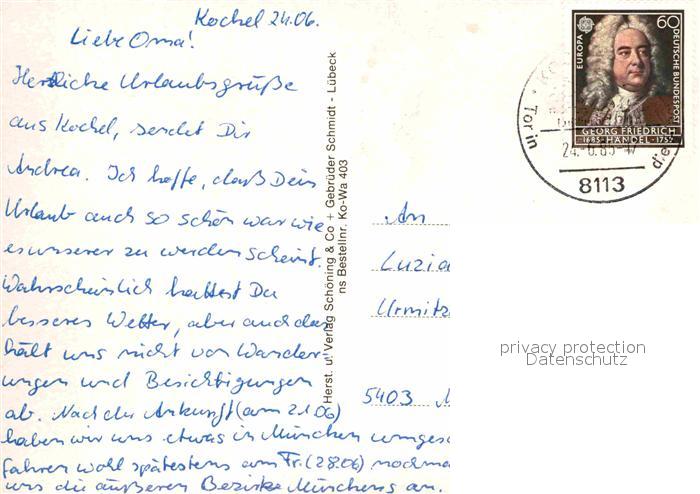 Kochel 24.06.
Liebe Oma!
Herzliche Urlaubsgrüße
aus Kochel, sendet Dir
Andrea. Ich hoffe, daß Dein
Urlaub auch so schön war wie
es unserer zu werden scheint.
Wahrscheinlich hattest Du
besseres Wetter, aber auch das
hält uns nicht von Wander-
ungen und Besichtigungen
ab. Nach der Ankunft (am 21.06)
haben wir uns etwas in München umges
fahren wohl spätestens am Fr. (28.06) nochma
uns die äußeren Bezirke Münchens an.
Herst. u. Verlag Schöning & Co + Gebrüder Schmidt - Lübeck
ns Bestellnr. Ko-Wa 403
EUROPA
60
DEUTSCHE BUNDESPOST
GEORG FRIEDRICH
1685 HÄNDEL 1759
Tor in die
24.-6.85-17
8113
An
Luzia
Urmitz
5403 M
privacy protection
Datenschutz